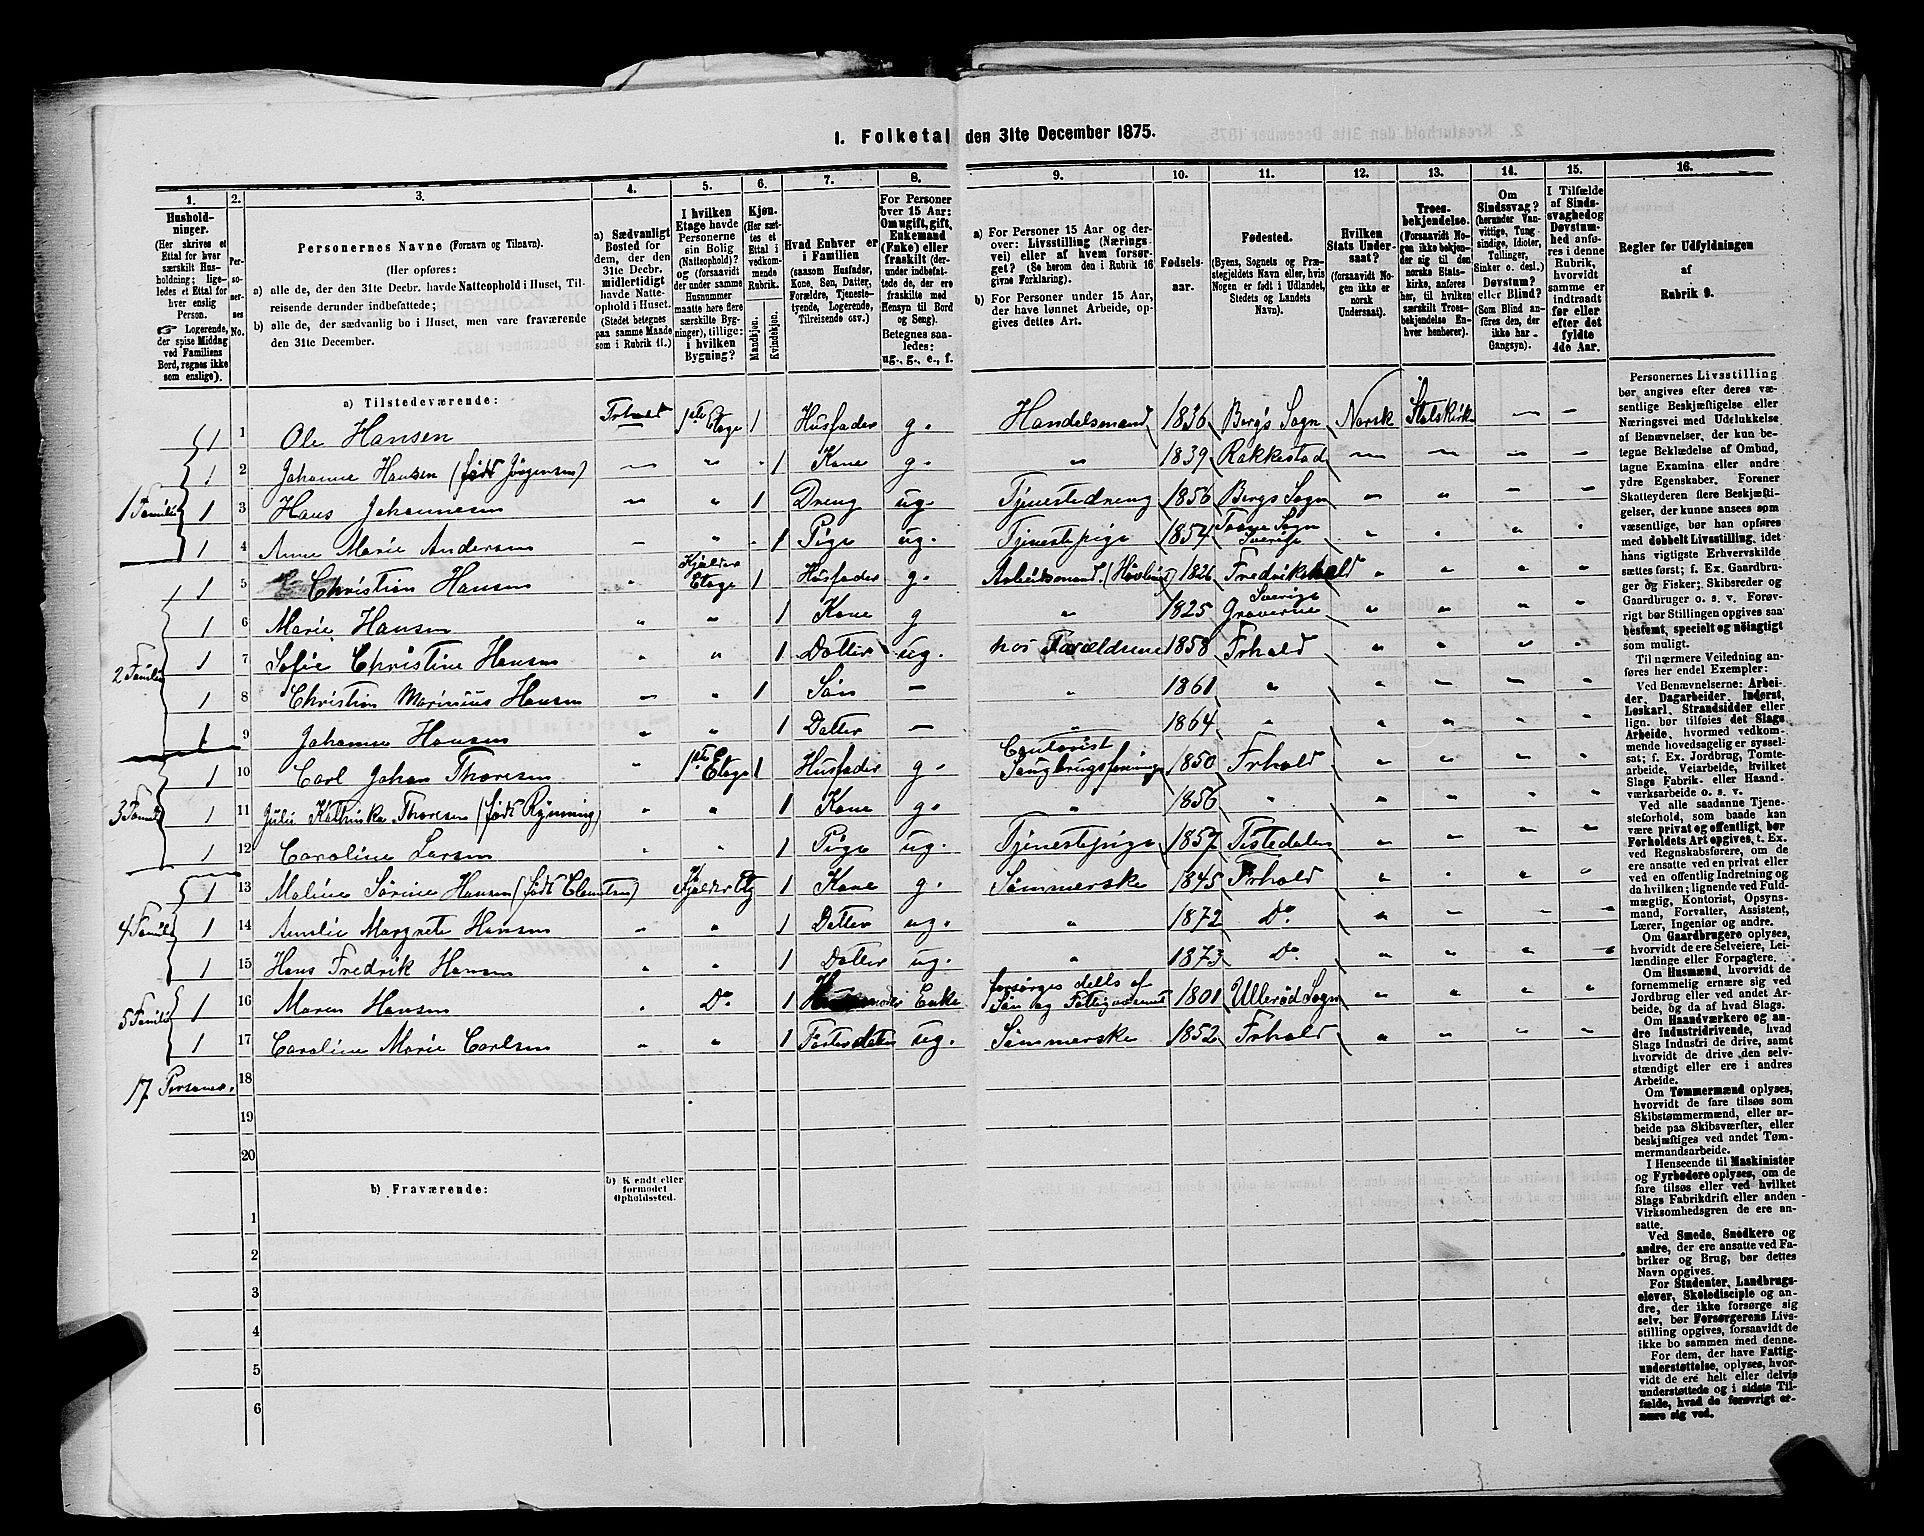 1. Folketal den 31te December 1875.
1. 2. 3. 4. 5. 6. 7. 8. 9. 10. 11. 12. 13. 14. 15. 16.
Husholdninger.
(Her skrives et Ettal for hver særskilt Husholdning; ligeledes et Ettal for hver enslig Person.
☞ Logerende, der spise Middag ved Familiens Bord, regnes ikke som enslige).
Personernes No.
Personernes Navne (Fornavn og Tilnavn).
(Her opføres:
a) alle de, der den 31te Decbr. havde Natteophold i Huset, Tilreisende derunder indbefattede;
b) alle de, der sædvanlig bo i Huset, men vare fraværende den 31te December.
a) Sædvanligt Bosted for dem, der den 31te Decbr. midlertidigt havde Natteophold i Huset. (Stedet betegnes paa samme Maade som i Rubrik 11.)
I hvilken Etage havde Personerne sin Bolig (Natteophold)? og (forsaavidt der under samme Husnummer maatte høre flere særskilte Bygninger), tillige: i hvilken Bygning?
Kjøn.
(Her sættes et Ettal i vedkommende Rubrik.
Mandkjøn. Kvindekjøn.
Hvad Enhver er i Familien
(saasom Husfader, Kone, Søn, Datter, Forældre, Tjenestetyende, Logerende, Tilreisende osv.)
For Personer over 15 Aar: Om ugift, gift, Enkemand (Enke) eller fraskilt (derunder indbefattede de, der ere fraskilte med Hensyn til Bord og Seng). Betegnes saaledes: ug., g., e., f.
a) For Personer 15 Aar og derover: Livsstilling (Næringsvei) eller af hvem forsørget? (Se herom den i Rubrik 16 givne Forklaring).
b) For Personer under 15 Aar, der have lønnet Arbeide, opgives dettes Art.
Fødselsaar.
Fødested.
(Byens, Sognets og Præstegjeldets Navn eller, hvis Nogen er født i Udlandet, Stedets og Landets Navn).
Hvilken Stats Undersaat?
(forsaavidt Nogen ikke er norsk Undersaat).
Troesbekjendelse.
(Forsaavidt Nogen ikke bekjender sig til den norske Statskirke, anføres her, til hvilken særskilt Troesbekjendelse Enhver henhører).
Om Sindssvag? (herunder Vanvittige, Tungsindige, Idioter, Tullinger, Sinker o. desl.) Døvstum? eller Blind? (Som Blind anføres den, der ikke har Gangsyn).
I Tilfælde af Sindssvaghed og Døvstumhed anføres i denne Rubrik, hvorvidt samme er indtraadt før eller efter det fyldte 4de Aar.
Regler for Udfyldningen af Rubrik 9.
a) Tilstedeværende:
1 1 Ole Hansen Frhald 1ste Etage 1 Husfader g. Handelsmand 1836 Bergs Sogn Norsk Statskirk — —
1 2 Johanne Hansen (født Jörgensen) — " 1 Kone g. " 1839 Rakkestad — — — —
1 Famili 1 3 Hans Johannesen — " 1 Dreng ug. Tjenestedreng 1856 Bergs Sogn " " — —
1 4 Anne Marie Andersen — " 1 Pige ug. Tjenestepige 1854 Sogn Sverige " " " "
1 5 Christian Hansen " Kjelder Etage 1 Husfader g. Arbeidsmand 1826 Fredrikshald " " " "
1 6 Marie Hansen " " 1 Kone g " 1825 Sverige " " " "
2 Famili 1 7 Sofie Christine Hansen " " 1 Datter ug. hos Forældrene 1858 Frhald " " " "
1 8 Christian Marinius Hansen — " 1 Søn — " 1861 " " " " "
1 9 Johanne Hansen " " 1 Datter — " 1864 " " " " "
1 10 Carl Johan Thoresen " 1ste Etage 1 Husfader g. Contorist Saugbrugsforeninge 1850 Frhald " " " "
3 Famili 1 11 Julie Kathinka Thoresen (født Rynning) " " 1 Kone g. " 1856 " " " " "
1 12 Caroline Larsen " " 1 Pige ug. Tjenestepige 1857 Tistedalen " — — "
1 13 Maline Sørine Hansen (født Clemetsen) " Kjelder Etg 1 Kone g. Sømmerske 1845 Frhald " " " "
4 Famili 1 14 Amalie Margrete Hansen " " 1 Datter ug. " 1872 Do " — — —
1 15 Hans Fredrik Hansen " " 1 Datter ug. " 1873 Do " " " "
1 16 Maren Hansen " Do 1 Enke forsørges dells af Søn og Fattigvæsenet 1801 Ullerød Sogn " " " "
5 Famili 1 17 Caroline Marie Carlsen " " 1 ug. Sømmerske 1852 Frhald " " " "
17 Personer. 18
19
20
b) Fraværende:
b) Kjendt eller formodet Opholdssted.
1
2
3
4
5
6
Personernes Livsstilling
bør angives efter deres væ-
sentlige Beskjæftigelse eller
Næringsvei med Udelukkelse
af Benævnelser, der kun be-
tegne Beklædelse af Ombud,
tagne Examina eller andre
ydre Egenskaber. Forener
Skatteyderen flere Beskjæfti-
gelser, der kunne ansees som
væsentlige, bør han opføres
med dobbelt Livsstilling, idet
hans vigtigste Erhvervskilde
sættes først; f. Ex. Gaardbru-
ger og Fisker; Skibsreder og
Gaardbruger o. s. v. Forøv-
rigt bør Stillingen opgives saa
bestemt, specielt og nøiagtigt
som muligt.
Til nærmere Veiledning an-
føres her endel Exempler:
Ved Benævnelserne: Arbei-
der, Dagarbeider, Inderst,
Løskarl, Strandsidder eller
lign. bør tilføies det Slags
Arbeide, hvormed vedkom-
mende hovedsagelig er syssel-
sat; f. Ex. Jordbrug, Tomte-
arbeide, Veiarbeide, hvilket
Slags Fabrik- eller Haand-
værksarbeide o. s. v.
Ved alle saadanne Tjene-
steforhold, som baade kan
være privat og offentligt, bør
Forholdets Art opgives, t. Ex.
ved Regnskabsførere, om de
ere ansatte ved en privat eller
ved en offentlig Indretning og
da hvilken; lignende ved Fuld-
mægtig, Kontorist, Opsyns-
mand, Forvalter, Assistent,
Lærer, Ingeniør og andre.
Om Gaardbrugere oplyses,
hvorvidt de ere Selveiere, Lei-
lændinge eller Forpagtere.
Om Husmænd, hvorvidt de
fornemmelig ernære sig ved
Jordbrug eller ved andet Ar-
beide, og da af hvad Slags.
Om Haandværkere og an-
dre Industridrivende, hvad
Slags Industri de drive, samt
hvorvidt de drive den selv-
stændigt eller ere i andres
Arbeide.
Om Tømmermænd oplyses,
hvorvidt de fare tilsøs som
Skibstømmermænd, eller ar-
beide paa Skibsværfter, eller
beskjæftiges ved andet Tøm-
mermandsarbeide.
I Henseende til Maskinister
og Fyrbødere oplyses, om de
fare tilsøs eller ved hvilket
Slags Fabrikdrift eller anden
Virksomhedsgren de ere an-
satte.
Ved Smede, Snedkere og
andre, der ere ansatte ved Fa-
briker og Brug, bør dettes
Navn opgives.
For Studenter, Landbrugs-
elever, Skoledisciple og an-
dre, der ikke forsørge sig
selv, bør Forsørgerens Livs-
stilling opgives, forsaavidt de
ikke bo sammen med denne.
For dem, der have Fattig-
understøttelse, oplyses, hvor-
vidt de ere helt eller delvis
understøttede og i sidste Til-
fælde, hvad de forøvrigt er-
nære sig ved.